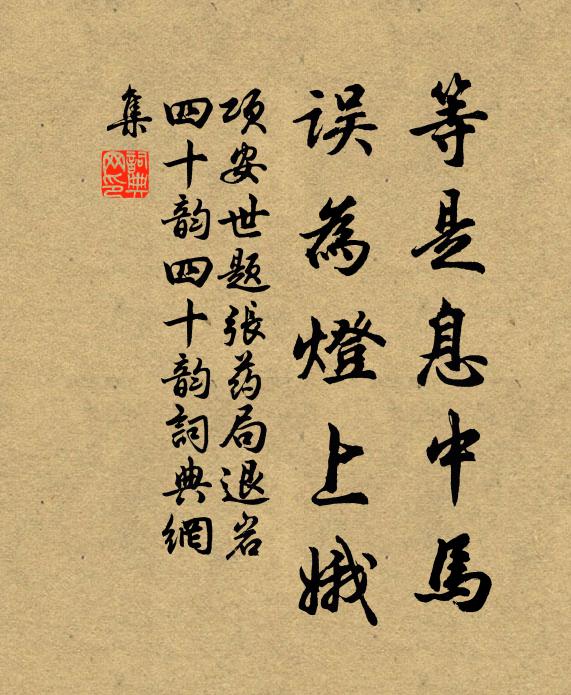 等是息中馬
误為燈上娥
项安世题張药局退岩
四十韵四十韵詞典網
集
詞典
网印